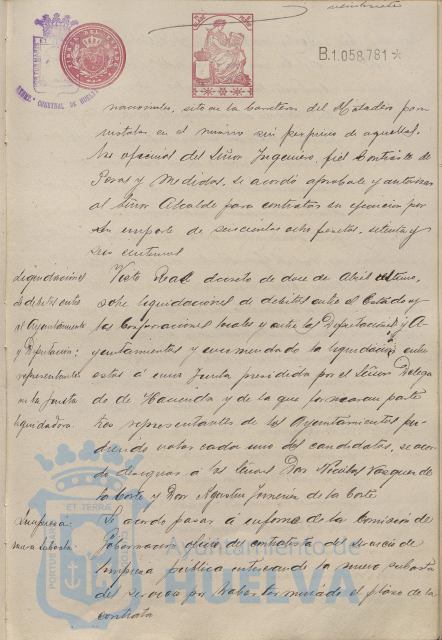 veintisiete
B.1.058.781 *
nacionales, sito en la Carretera del Matadero para
instalar en el mismo sin perjuicio de aquellas,
del Señor Ingeniero, fiel Contraste de
Pesas y Medidas, se acordó aprobarle y autorizar
al Señor Alcalde para contratar su ejecucion por
un importe de seiscientas ocho pesetas, setenta y
seis centimos
Liquidaciones
de debitos entre
el Ayuntamiento
y Diputación:
representantes
en la Junta
liquidadora.
Visto Real decreto de doce de Abril ultimo,
sobre liquidaciones de debitos entre el Estado y
las Corporaciones locales y entre las Diputaciones y A-
yuntamientos y encomendada la liquidacion entre
estas á una Junta presidida por el Señor Delega
do de Hacienda y de la que formaran parte
tres representantes de los Ayuntamientos pu-
diendo votar cada uno dos candidatos, se acor
do designar á los Señores Don Nicolas Vazquez de
la Corte y Don Agustin Jimenez de la Corte
Limpieza:
nueva subasta
Se acordó pasar á informe de la Comisión de
Gobernacion oficio del contratista del servicio de
limpieza publica interesando la nueva subasta
del servicio por haber terminado el plazo de la
contrata
PORTUS MARIS ET TERRÆ
Ayuntamiento de
HUELVA